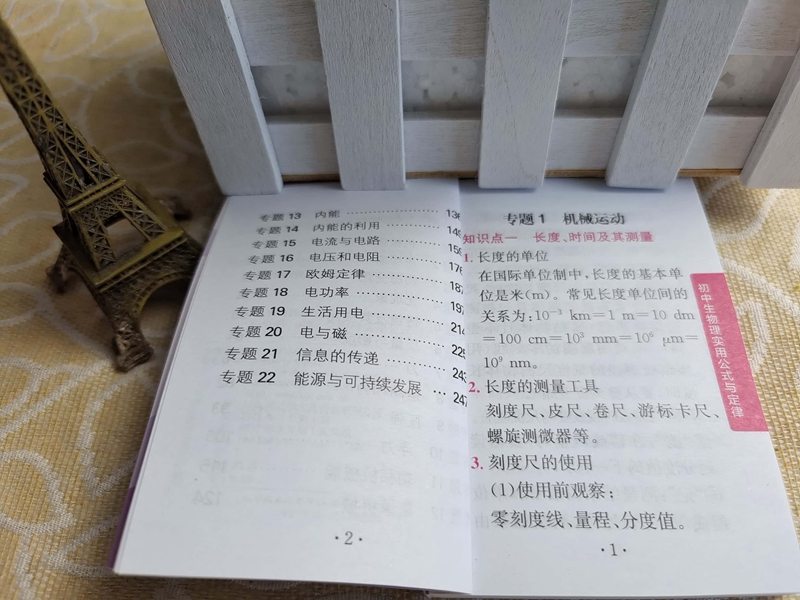 专题 13 内能 ………………… 136
专题 14 内能的利用 ………… 149
专题 15 电流与电路 …………
专题 16 电压和电阻 …………
专题 17 欧姆定律 ……………
专题 18 电功率 ………………
专题 19 生活用电 ……………
专题 20 电与磁 ………………
专题 21 信息的传递 …………
专题 22 能源与可持续发展 … 247
·2·
专题 1 机械运动
知识点一 长度、时间及其测量
1. 长度的单位
在国际单位制中,长度的基本单
位是米(m)。常见长度单位间的
关系为:10⁻³ km=1 m=10 dm
=100 cm=10³ mm=10⁶ μm=
10⁹ nm。
2. 长度的测量工具
刻度尺、皮尺、卷尺、游标卡尺、
螺旋测微器等。
3. 刻度尺的使用
(1)使用前观察:
零刻度线、量程、分度值。
·1·
初中生物理实用公式与定律